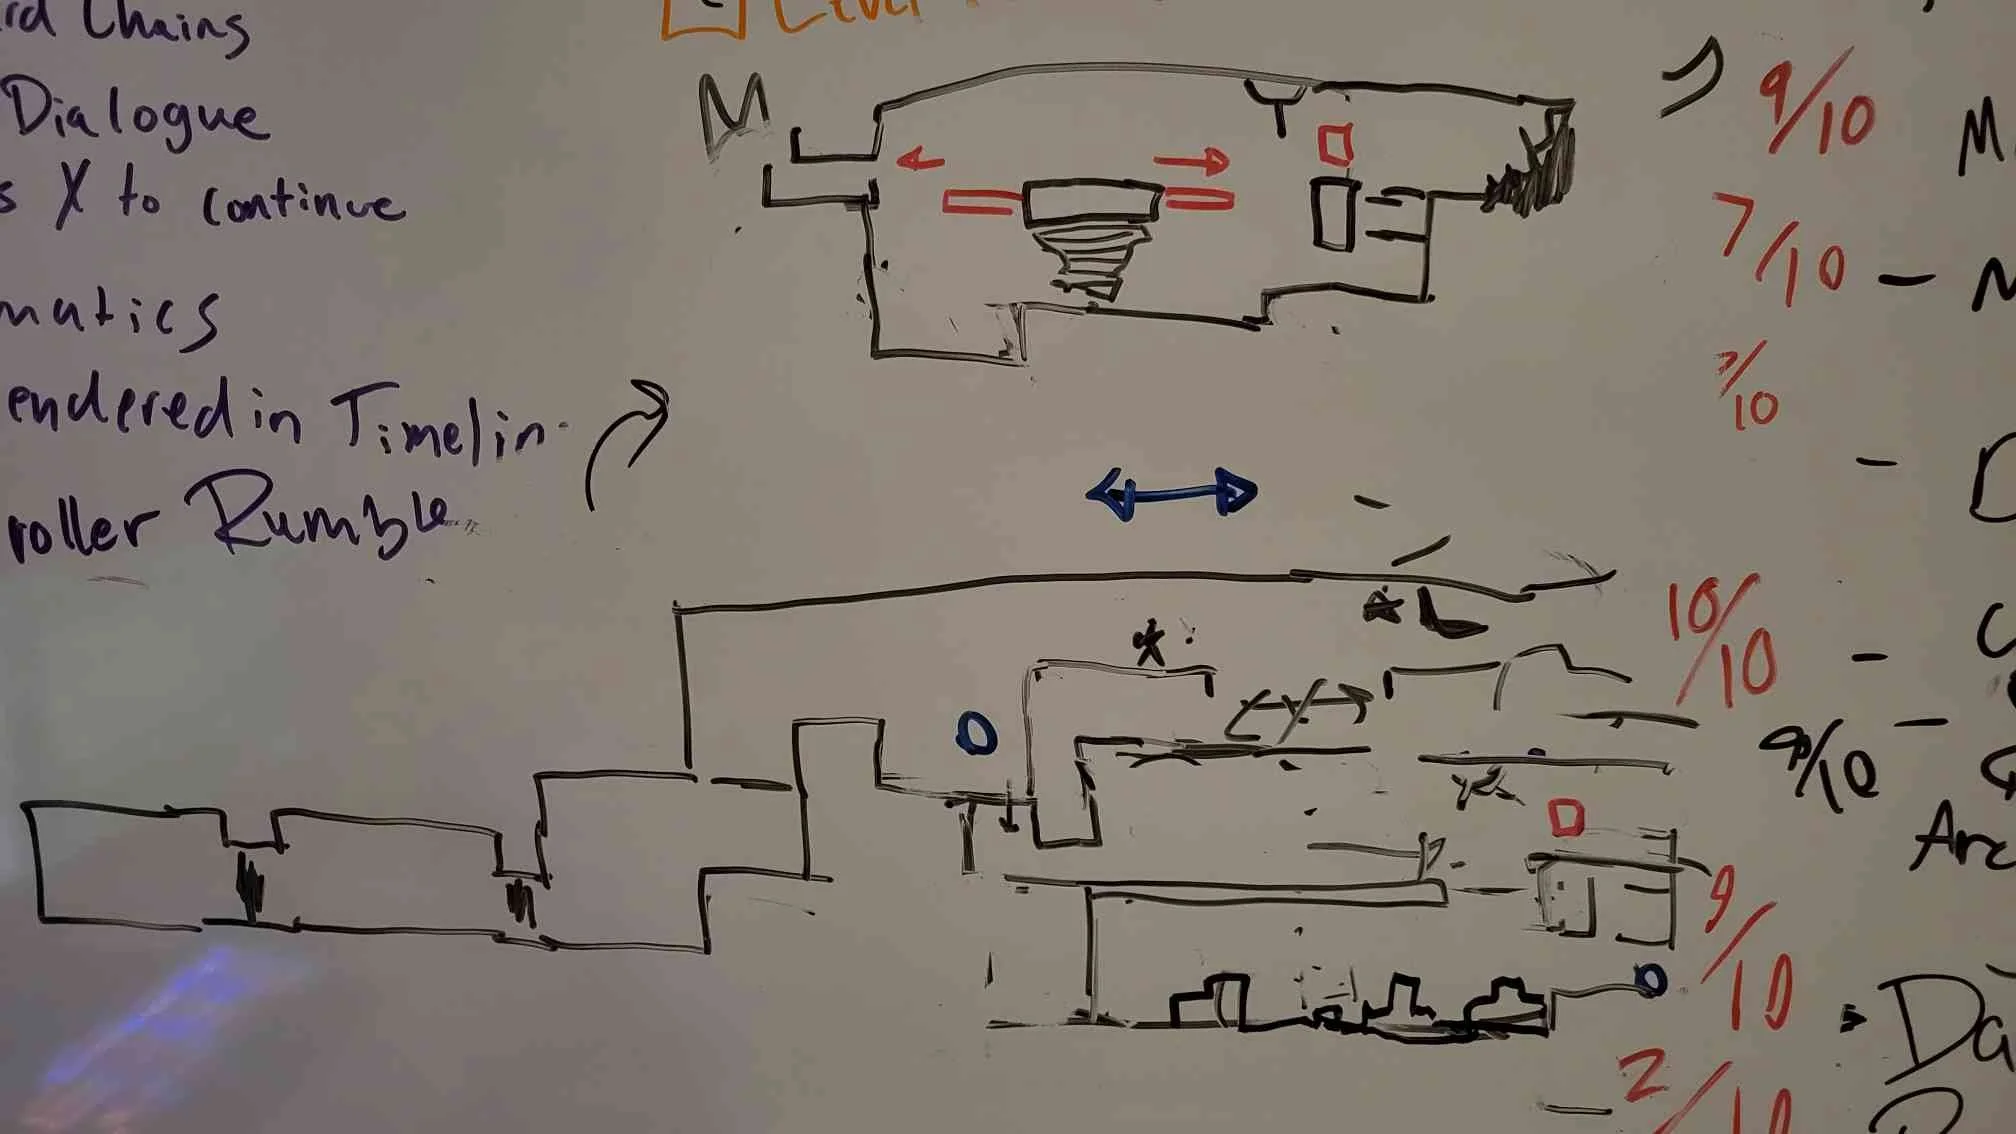 Chains
Dialogue
s X to continue
matics
endered in Timelin
roller Rumble
M
9/10
7/10 -
7/10
-
10/10 -
9/10 -
Arc
9/10
Da
2/10